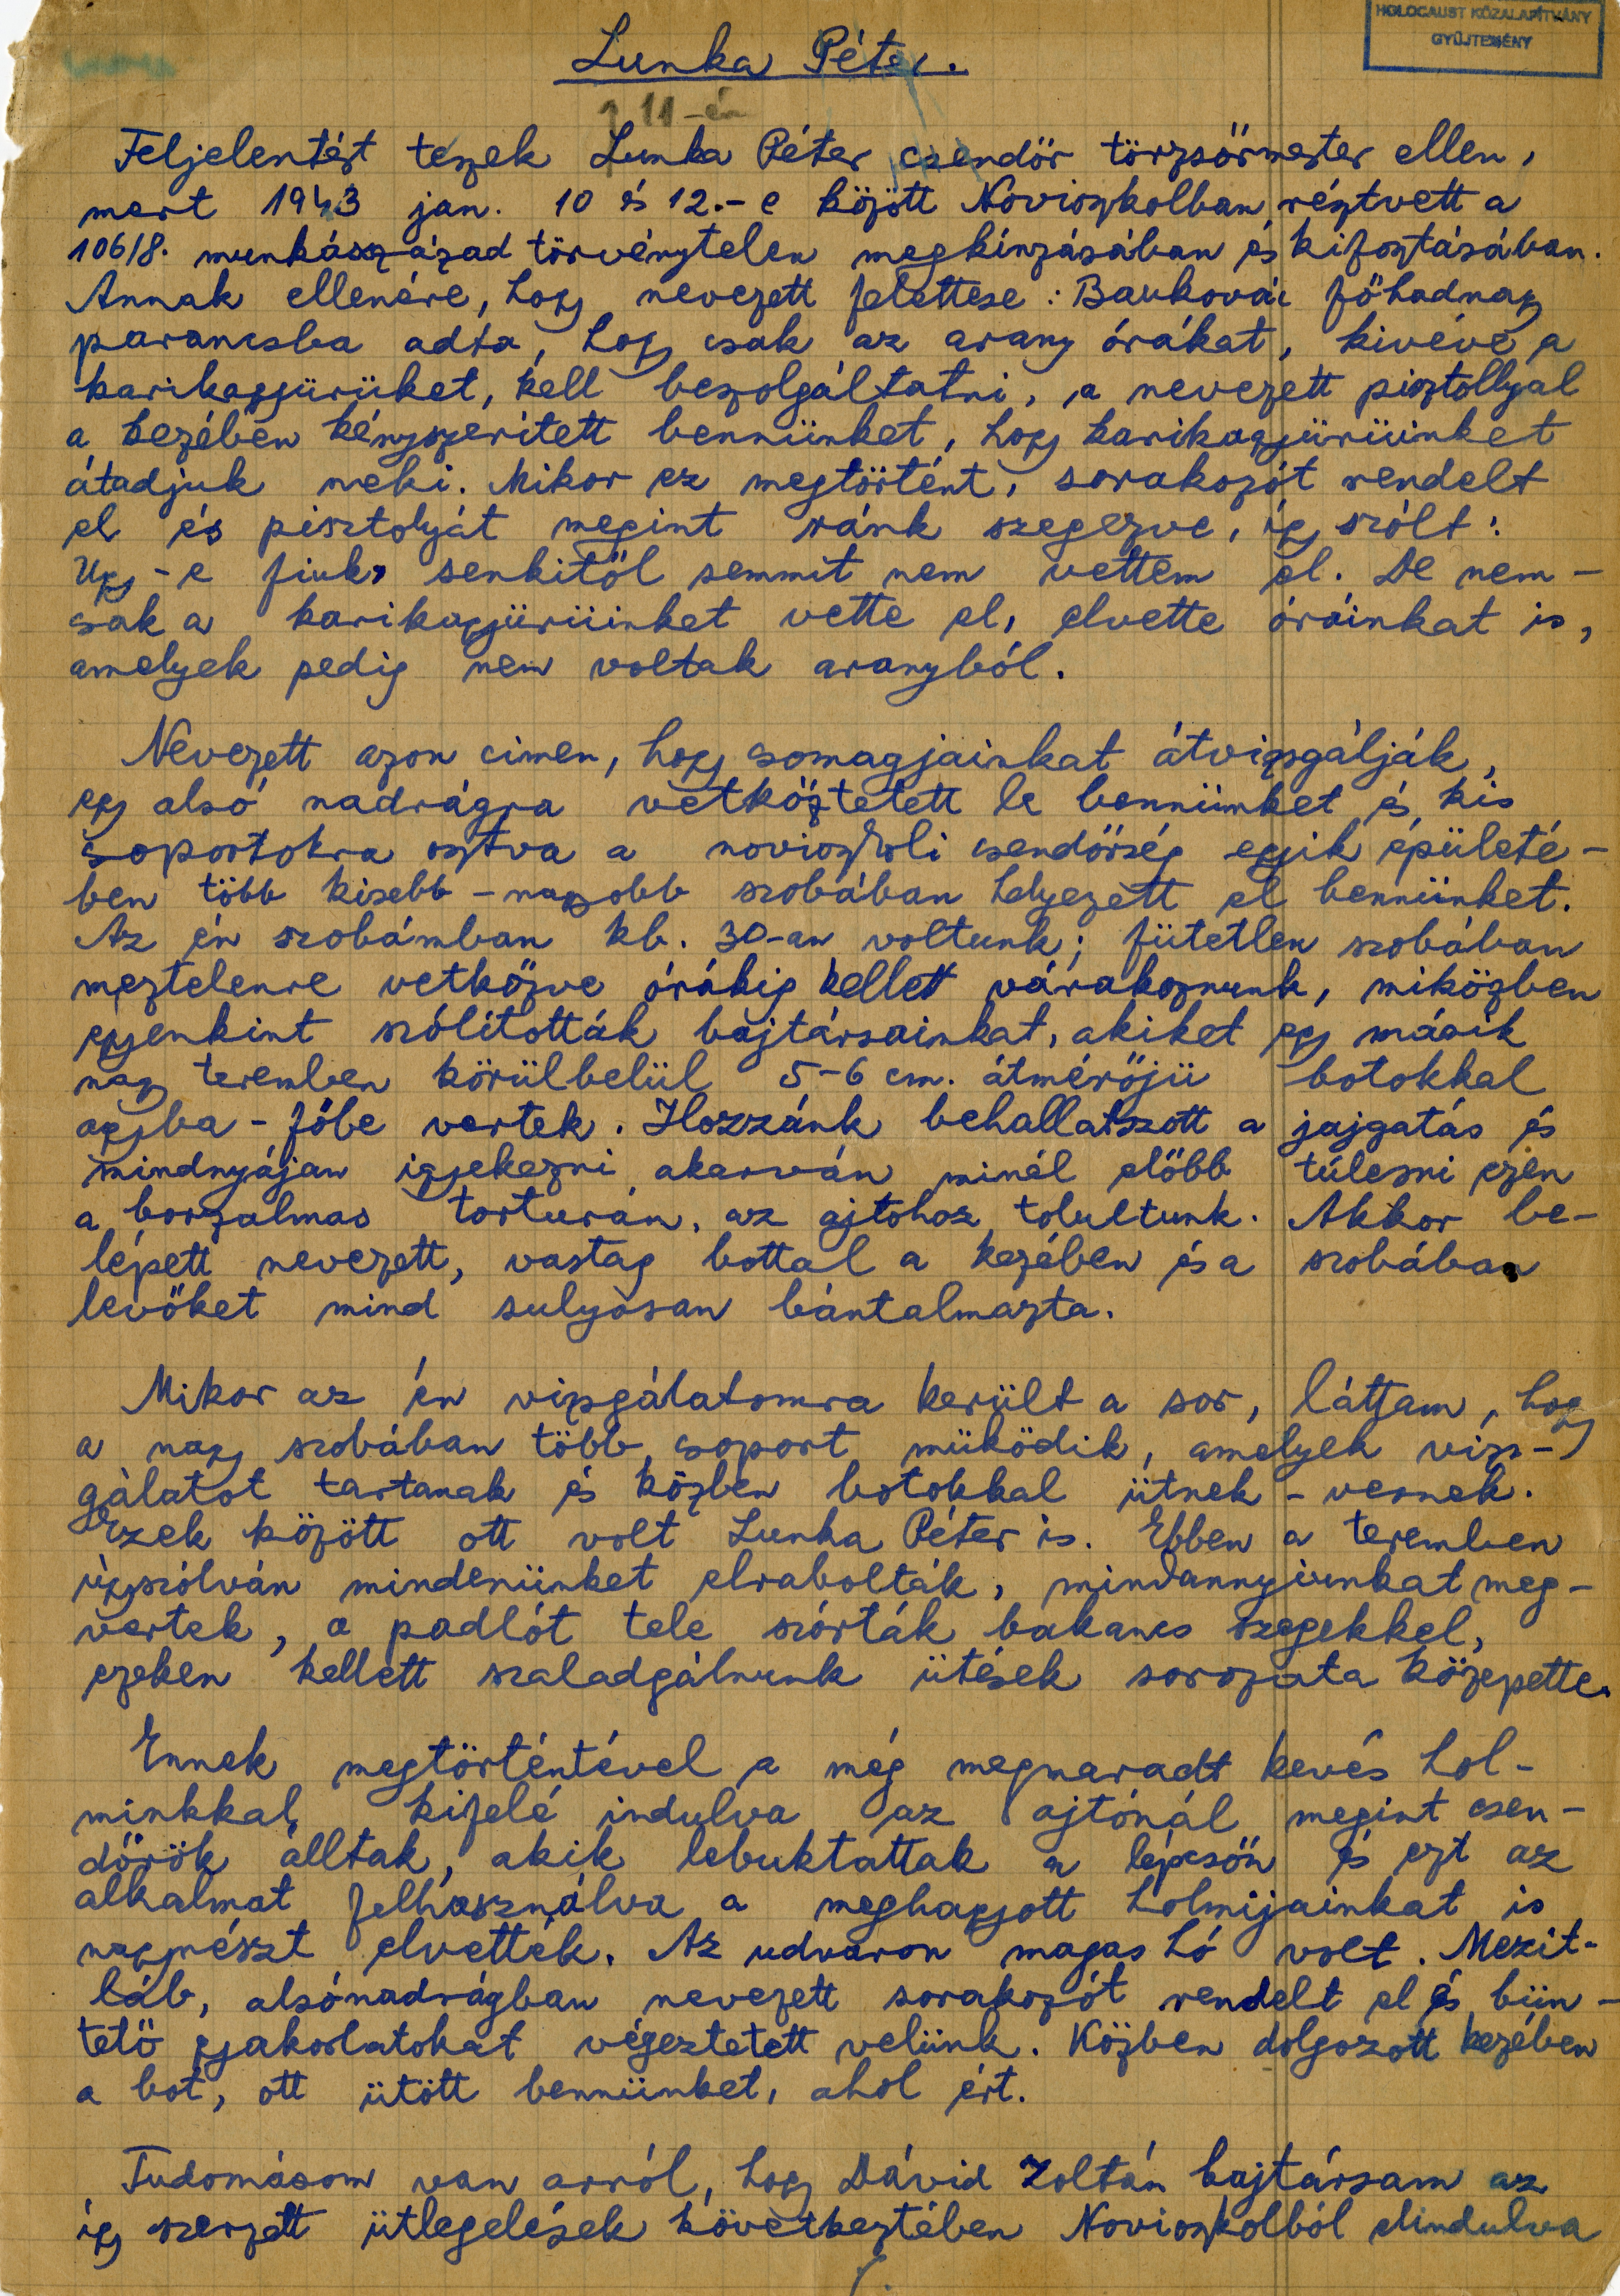 HOLOCAUST KÖZALAPÍTVÁNY
GYŰJTEMÉNY
Lunka Péter.
11-én
Feljelentést teszek Lunka Péter csendőr törzsőrmester ellen,
mert 1943 jan. 10 és 12.-e között Novioszkolban résztvett a
106/8. munkásszázad törvénytelen megkinzásában és kifosztásában.
Annak ellenére, hogy nevezett felettese: főhadnagy
parancsba adta, hogy csak az arany órákat, kivéve a
karikagyürüket, kell beszolgáltatni, a nevezett pisztollyal
a kezében kényszeritett bennünket, hogy karikagyürüinket
átadjuk neki. Mikor ez megtörtént, sorakozót rendelt
el és pisztolyát megint ránk szegezve, így szólt:
Ugy-e fiuk, senkitől semmit nem vettem el. De nem-
csak a karikagyürüinket vette el, elvette óráinkat is,
amelyek pedig nem voltak aranyból.
Nevezett azon cimen, hogy csomagjainkat átvizsgálják,
egy alsó nadrágra vetkőztetett le bennünket és kis
csoportokra osztva a novioszkoli csendőrség egyik épületé-
ben több kisebb-nagyobb szobában helyezett el bennünket.
Az én szobámban kb. 30-an voltunk; fütetlen szobában
meztelenre vetkőzve órákig kellett várakoznunk, miközben
egyenkint szólították bajtársainkat, akiket egy másik
nagy teremben körülbelül 5-6 cm. átmérőjü botokkal
agyba-főbe vertek. Hozzánk behallatszott a jajgatás és
mindnyájan igyekezni akarván minél előbb túlesni ezen
a borzalmas torturán, az ajtóhoz tolultunk. Akkor be-
lépett nevezett, vastag bottal a kezében és a szobában
levőket mind sulyosan bántalmazta.
Mikor az én vizsgálatomra került a sor, láttam, hogy
a nagy szobában több csoport müködik, amelyek vizs-
gálatot tartanak és közben botokkal ütnek-vernek.
Ezek között ott volt Lunka Péter is. Ebben a teremben
úgyszólván mindenünket elrabolták, mindannyiunkat meg-
vertek, a padlót tele szórták bakancs szegekkel,
ezeken kellett szaladgálnunk ütések sorozata közepette.
Ennek megtörténtével a még megmaradt kevés hol-
minkkal, kifelé indulva az ajtónál megint csen-
dőrök álltak, akik lebuktattak a lépcsőn és ezt az
alkalmat felhasználva a meghagyott holmijainkat is
nagyrészt elvették. Az udvaron magas hó volt. Mezit-
láb, alsónadrágban nevezett sorakozót rendelt el és bün-
tető gyakorlatokat végeztetett velünk. Közben dolgozott kezében
a bot, ott ütött bennünket, ahol ért.
Tudomásom van arról, hogy Dávid Zoltán bajtársam az
így szerzett ütlegelések következtében Novioszkolból elindulva